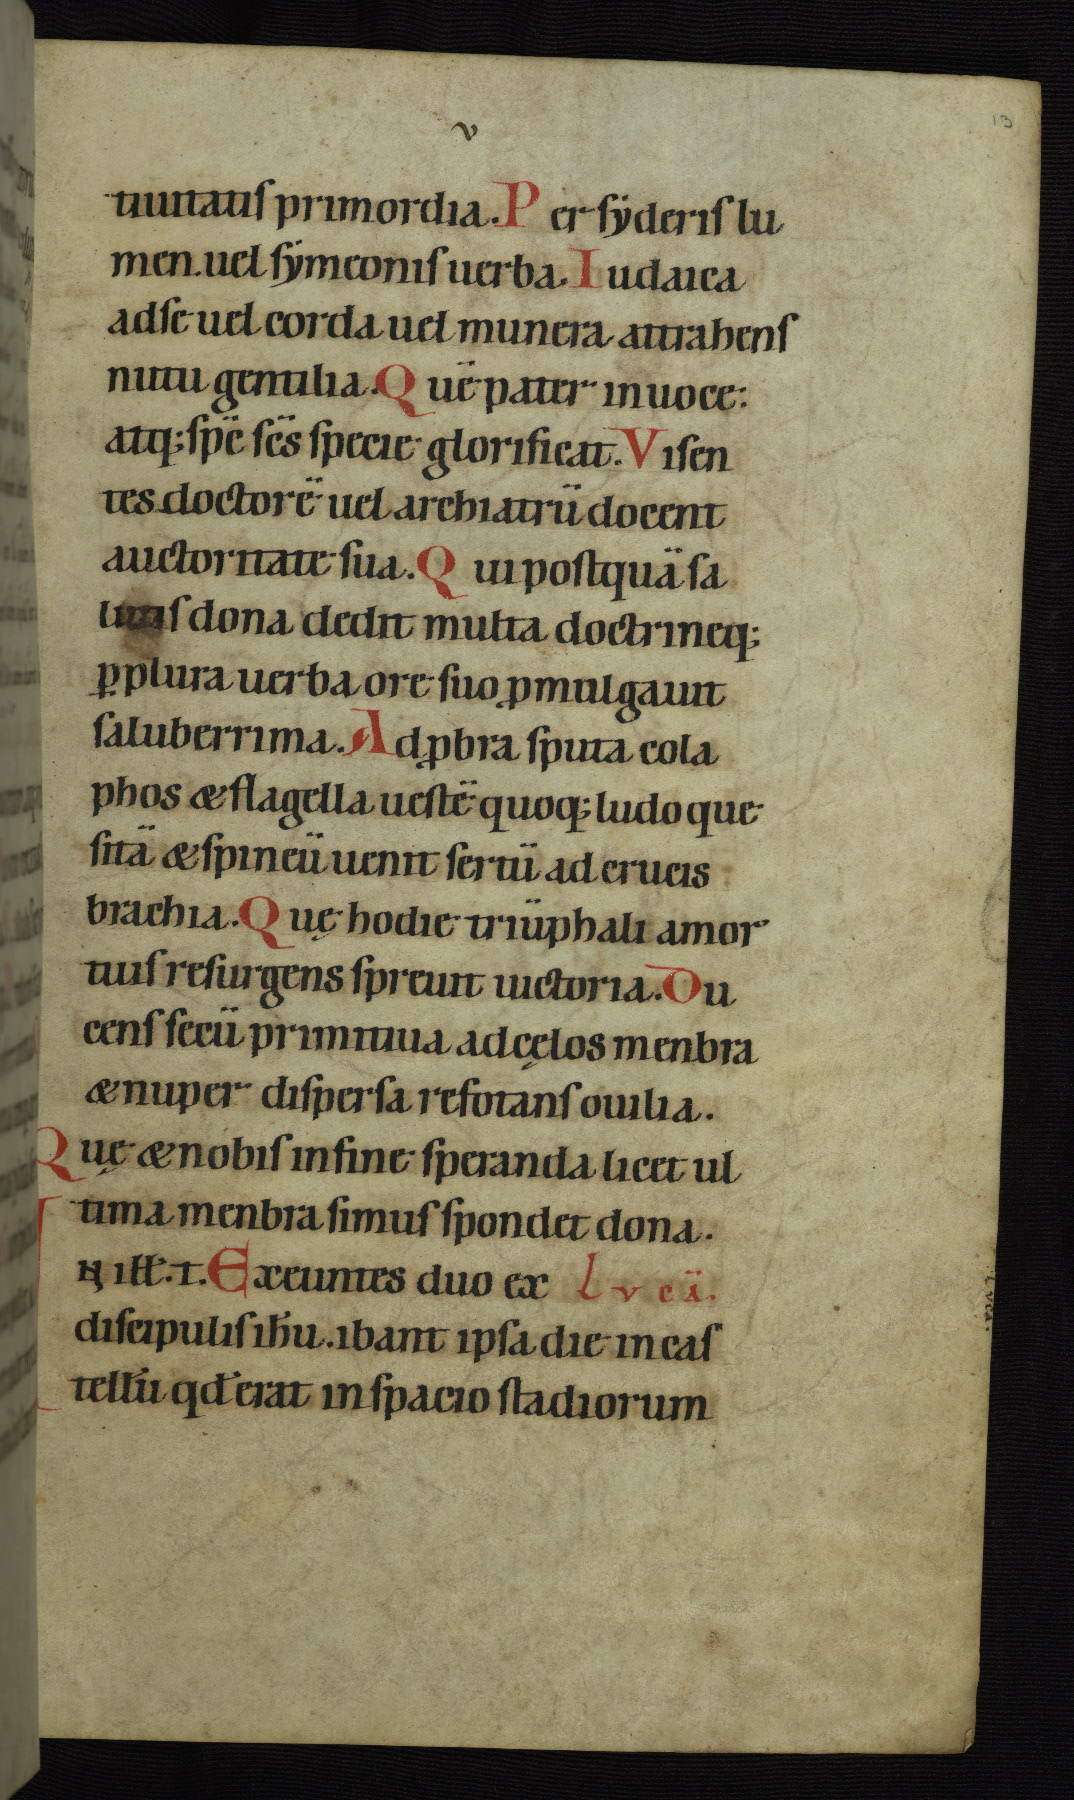 v
13
tiuitatiſ primordia. Per ſẏderiſ lu
men. uel ſẏmeoniſ uerba. Iudaica
adſe uel corda uel munera attrahenſ
nutu gentilia. Quē pater in uoce:
atq; ſpē ſc̄s ſpecie glorificat. Viſen
tes doctorē uel archiatrū docent
auctoritate ſua. Qui poſtquā ſa
lutiſ dona dedit multa doctrineq;
ꝑplura uerba ore ſuo ꝓmulgauit
ſaluberrima. Ad ꝓbra ſputa cola
phos & flagella ueſtē quoq; ludo que
ſitā & ſpineū uenit ſertū ad crucis
brachia. Quę hodie triūphali amor
tuiſ reſurgens ſpreuit uictoria. Du
cenſ ſecū primitiua ad cęlos menbra
& nuper diſperſa refotanſ ouilia.
Quę & nobiſ in fine ſperanda licet ul
tima menbra ſimuſ ſpondet dona.
In ill̄. t. Exeuntes duo ex Lucā.
diſcipuliſ ih̄u. ibant ipſa die in caſ
tell̄u qd̄ erat in ſpacio ſtadiorum